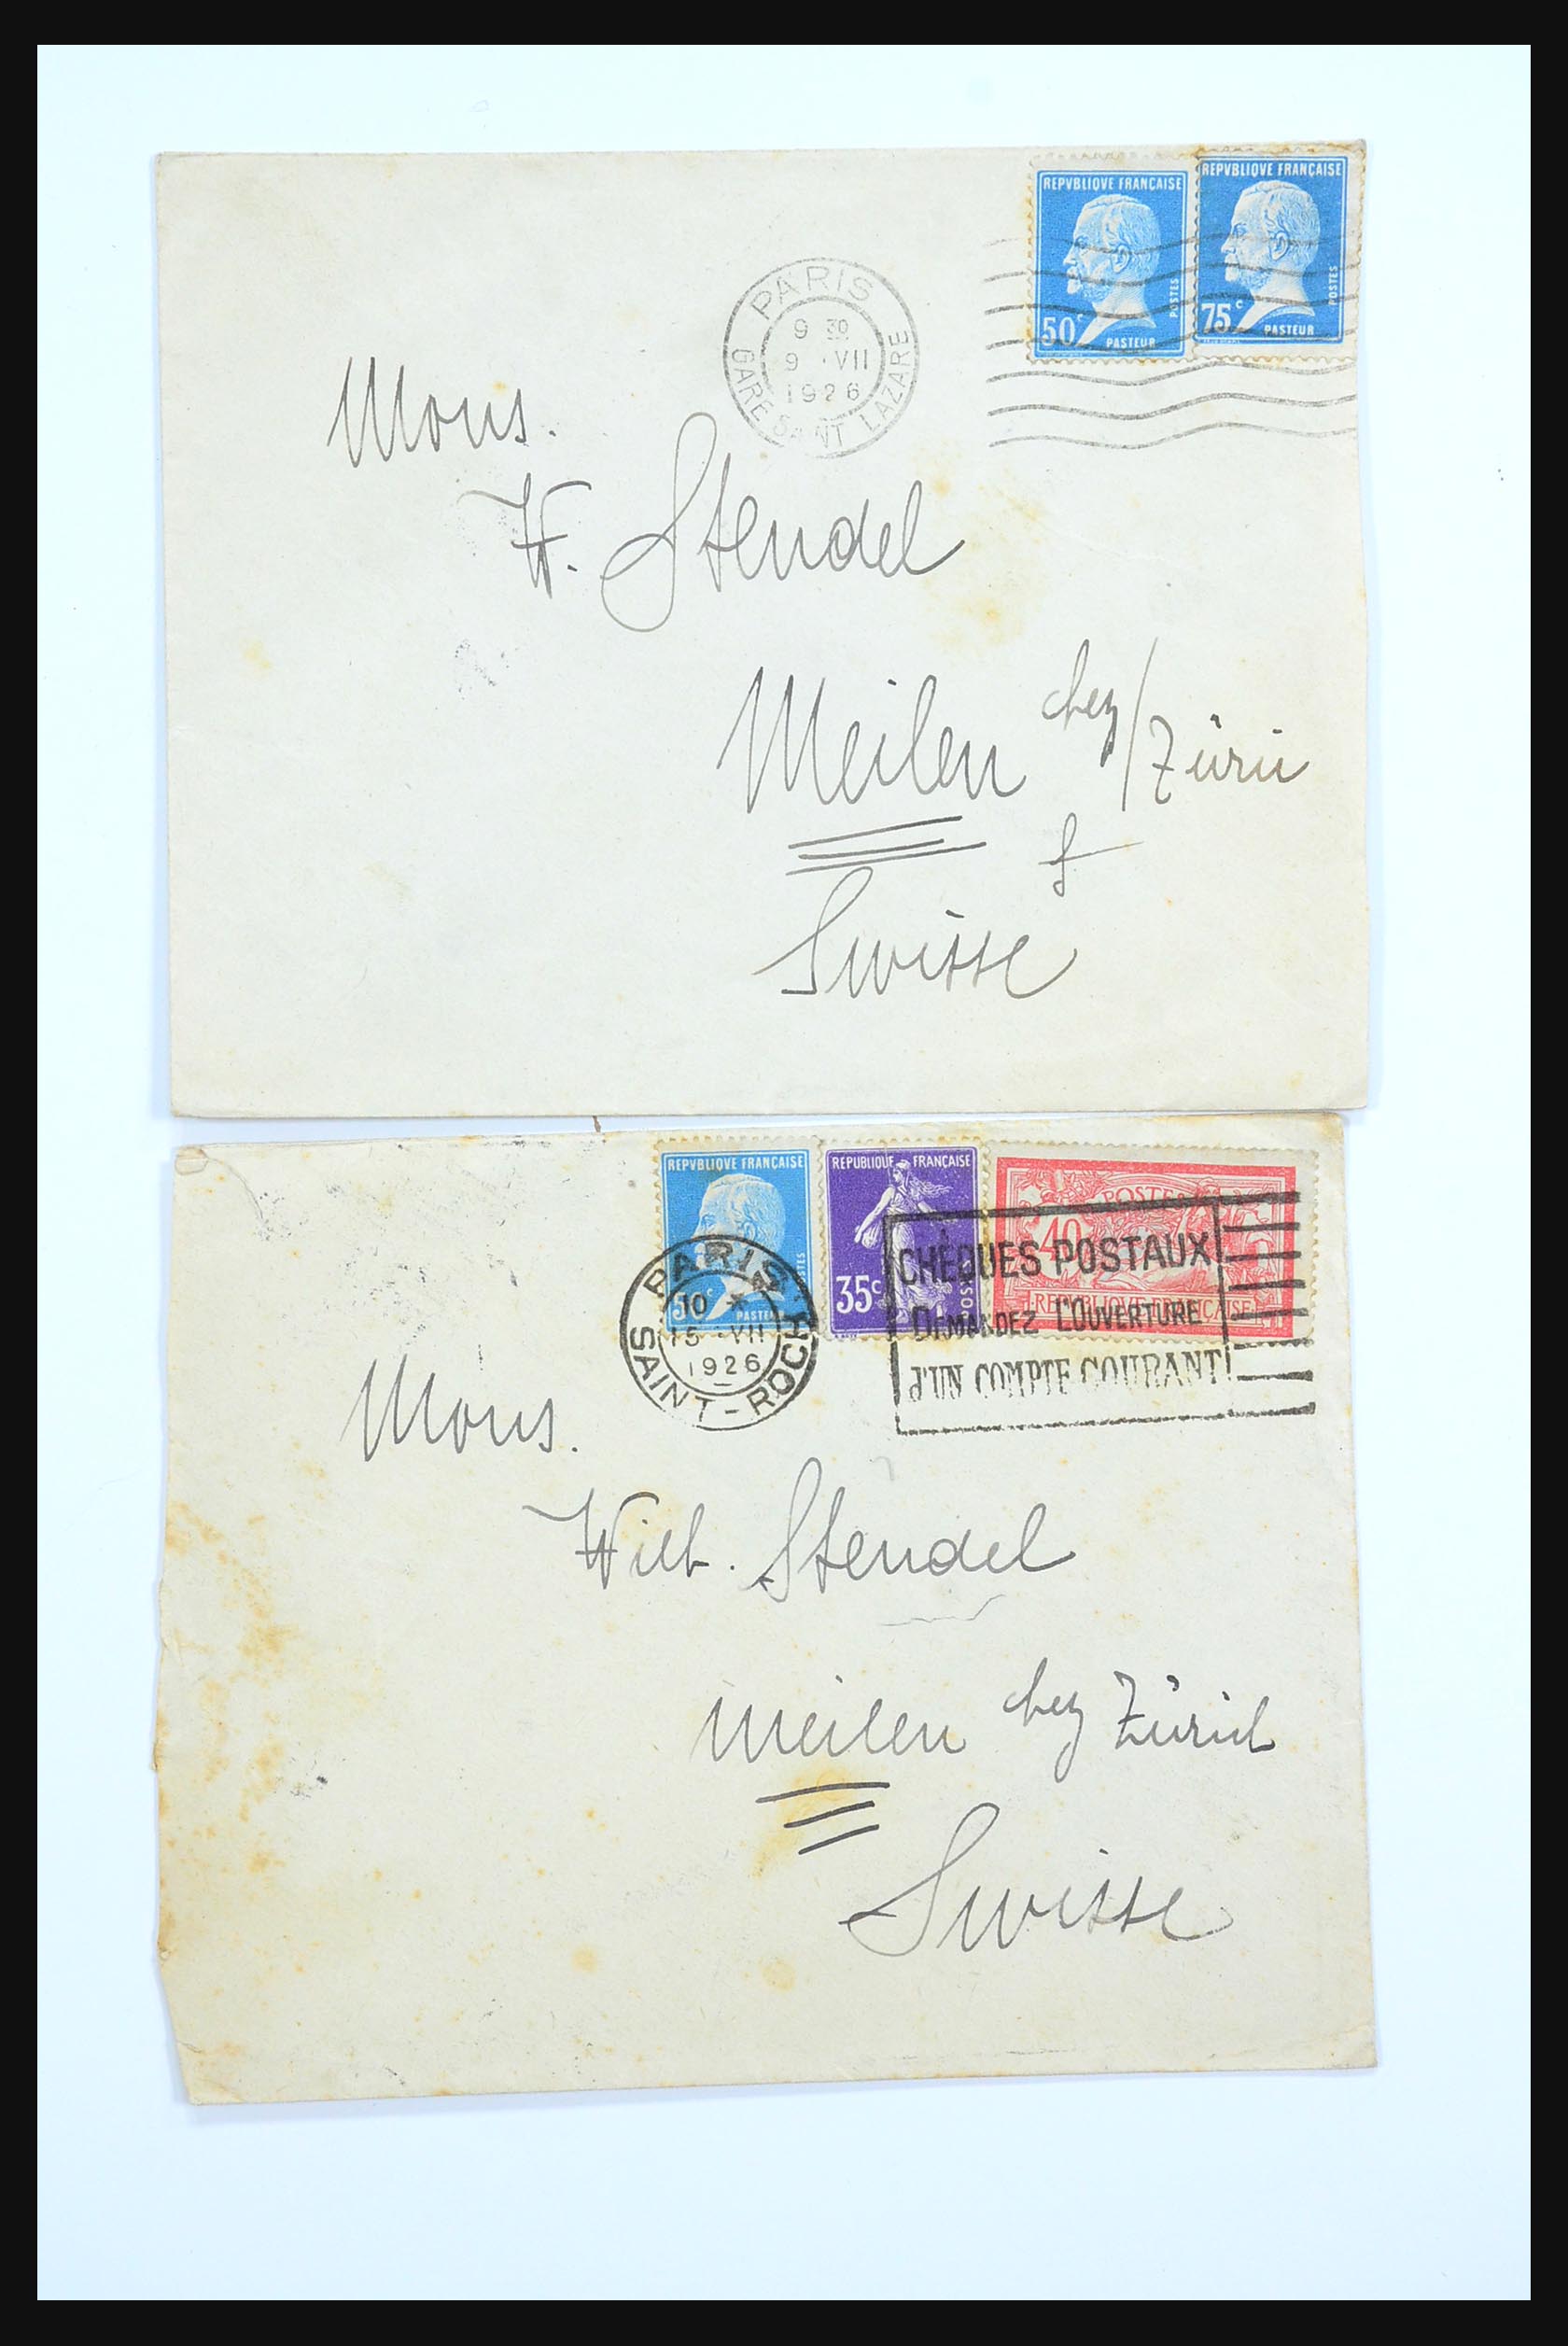 REPVBLIQVE FRANÇAISE
50c
POSTES
PASTEUR
REPVBLIQVE FRANÇAISE
75c
POSTES
PASTEUR
PARIS
9 30
9 · VII
1926
GARE SAINT LAZARE
Mons.
W. Stendel
Meilen chez / Züri
Swisse
REPVBLIQVE FRANÇAISE
50c
POSTES
PASTEUR
REPUBLIQUE FRANÇAISE
35c
POSTES
POSTES
40
REPUBLIQUE FRANÇAISE
PARIS
10 *
15 · VII
1926
SAINT-ROCH
CHÈQUES POSTAUX
DEMANDEZ L'OUVERTURE
d'UN COMPTE COURANT
Mons.
Wilh. Stendel
Meilen chez Zürich
Swisse